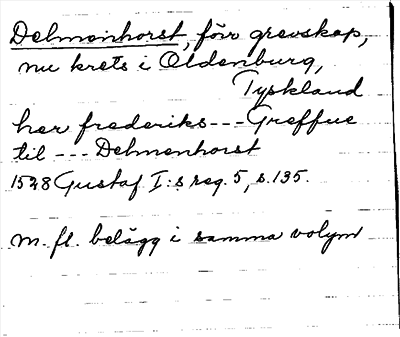 Delmenhorst, förr grevskap,
nu krets i Oldenburg,
Tyskland
her frederiks --- Greffue
til --- Delmenhorst
1528 Gustaf I:s reg. 5, s. 135.
m. fl. belägg i samma volym